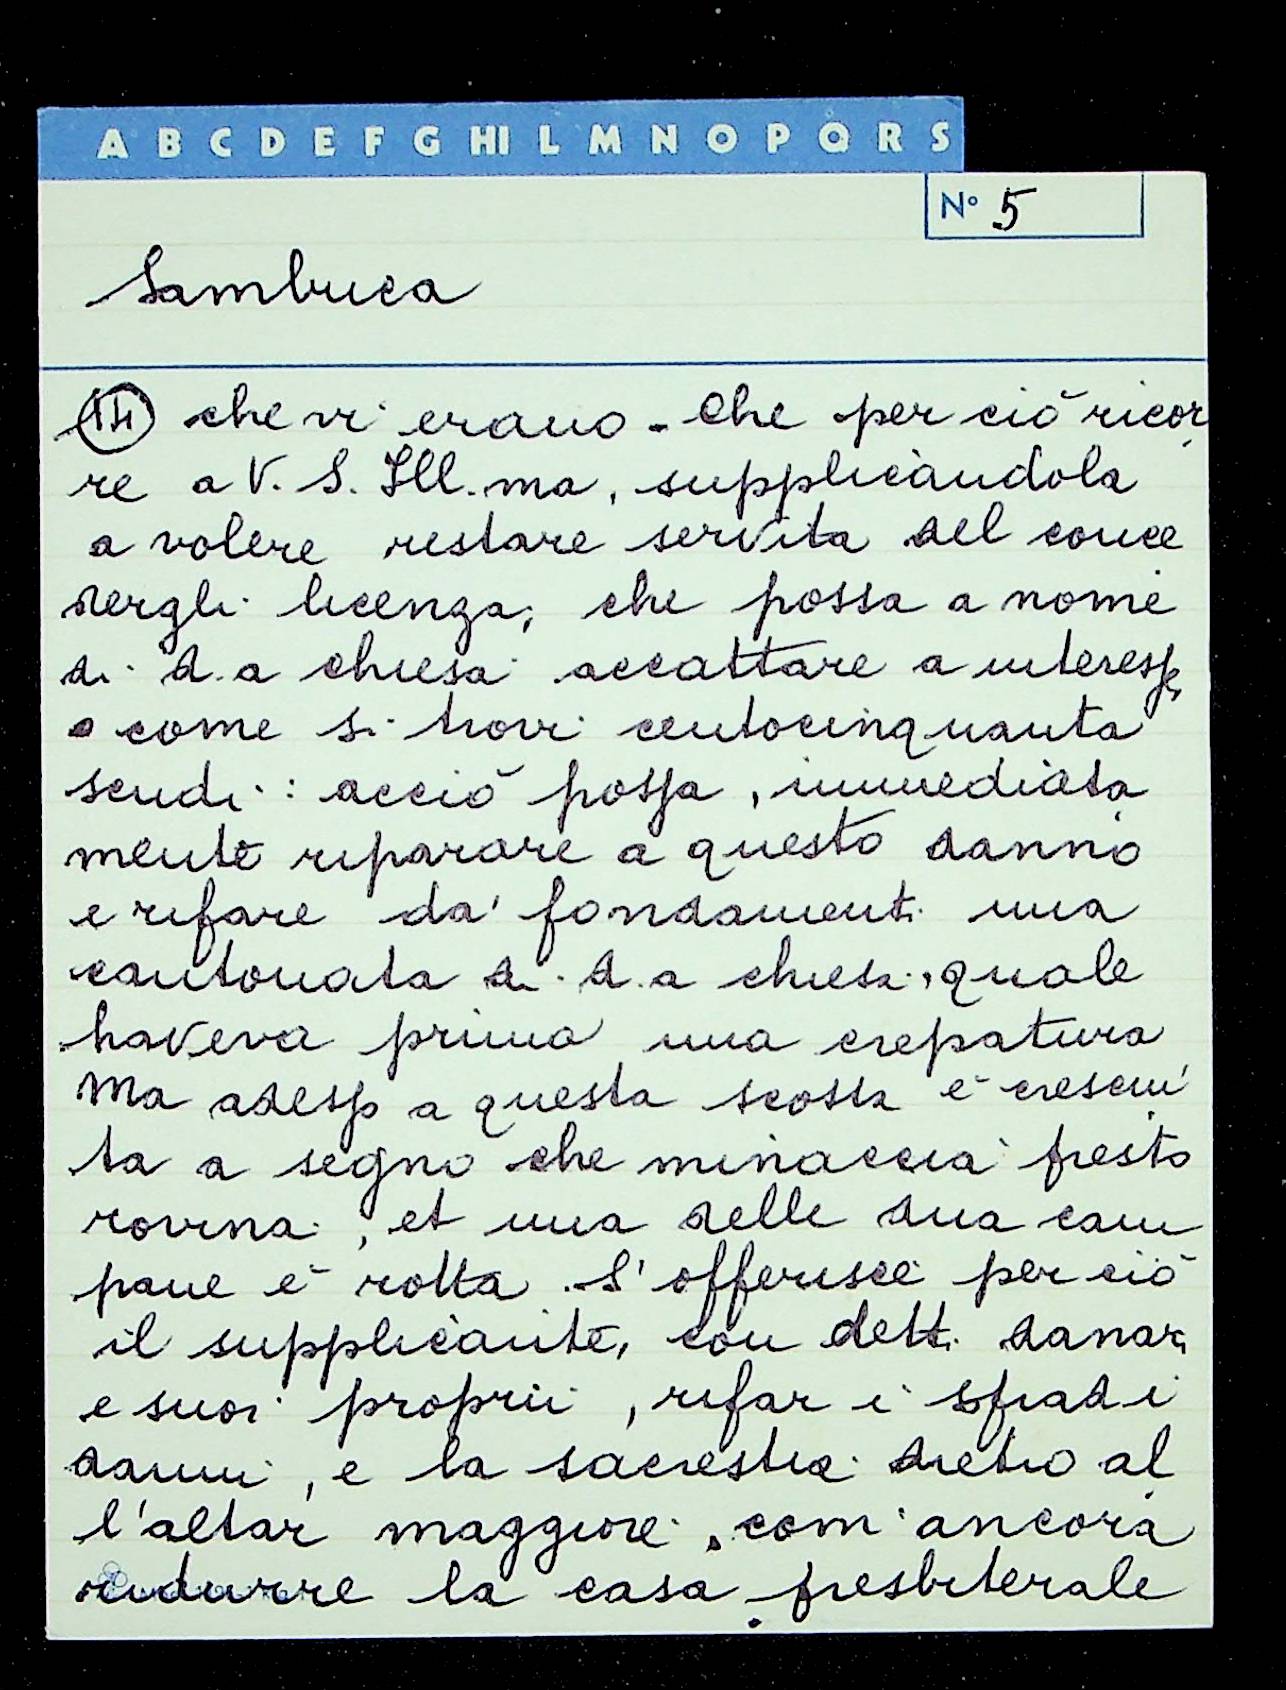 A B C D E F G HI L M N O P Q R S
N° 5
Sambuca
14 che vi erano. Che per ciò ricor
re a V. S. Ill.ma, supplicandola
a volere restare servita del conce
dergli licenza, che possa a nome
di d.a chiesa accattare a interesse,
o come si trovi centocinquanta
scudi: acciò possa, immediata
mente riparare a questo danno
e rifare da' fondamenti una
cantonata di d.a chiesa, quale
haveva prima una crepatura
Ma adesso a questa scossa è cresciu
ta a segno che minaccia presto
rovina, et una delle dua cam
pane è rotta. S'offerisce per ciò
il supplicante, con detti danari
e suoi proprii, rifar i spradi
danni, e la sacrestia dietro al
l'altar maggiore, com'ancora
ridurre la casa presbiterale